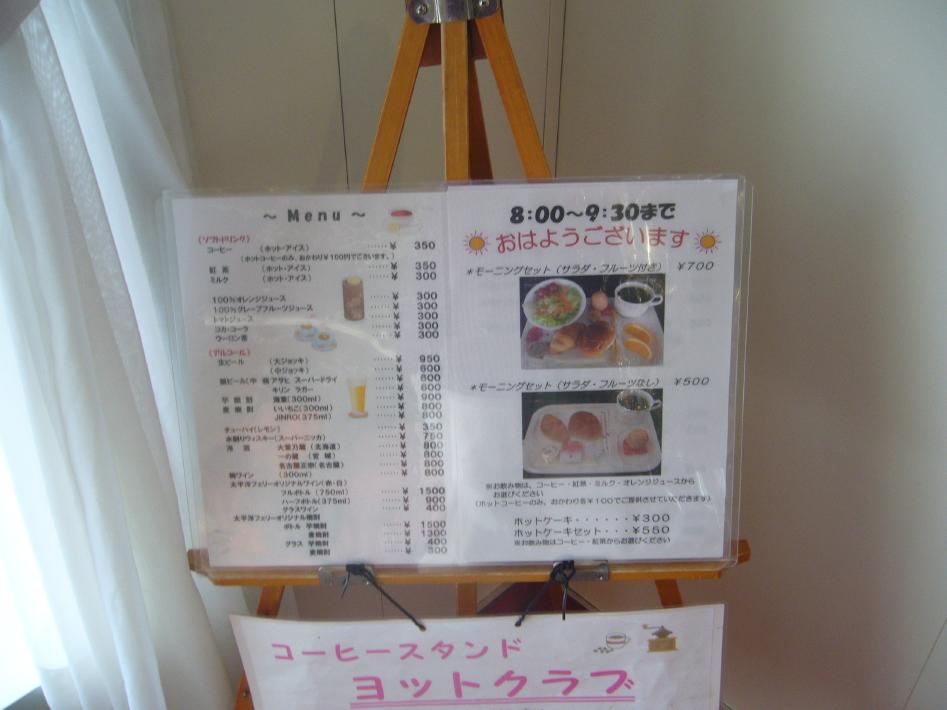 ～ Menu ～
(ソフトドリンク)
コーヒー (ホット・アイス) ¥ 350
(ホットコーヒーのみ、おかわり¥100円でございます。)
紅茶 (ホット・アイス) ¥ 350
ミルク (ホット・アイス) ¥ 300
100%オレンジジュース ¥ 300
100%グレープフルーツジュース ¥ 300
トマトジュース ¥ 300
コカ・コーラ ¥ 300
ウーロン茶 ¥ 300
(アルコール)
生ビール (大ジョッキ) ¥ 950
(中ジョッキ) ¥ 600
瓶ビール(中 瓶 アサヒ スーパードライ ¥ 600
キリン ラガー ¥ 600
芋焼酎 海童(300ml) ¥ 900
麦焼酎 いいちこ(300ml) ¥ 800
JINRO(375ml) ¥ 800
チューハイ(レモン) ¥ 350
水割りウィスキー(スーパーニッカ) ¥ 750
冷酒 大雪乃蔵 (北海道) ¥ 800
一の蔵 (宮城) ¥ 800
名古屋正宗(名古屋) ¥ 800
梅ワイン (300ml) ¥ 800
太平洋フェリーオリジナルワイン(赤・白)
フルボトル (750ml) ¥ 1500
ハーフボトル(375ml) ¥ 900
グラスワイン ¥ 400
太平洋フェリーオリジナル焼酎
ボトル 芋焼酎 ¥ 1500
麦焼酎 ¥ 1300
グラス 芋焼酎 ¥ 400
麦焼酎 ¥ 300
8:00～9:30まで
おはようございます
＊モーニングセット(サラダ・フルーツ付き) ¥700
＊モーニングセット(サラダ・フルーツなし) ¥500
※お飲み物は、コーヒー・紅茶・ミルク・オレンジジュースから
お選びください
(ホットコーヒーのみ、おかわり各¥100でご提供させていただきます)
ホットケーキ・・・・・・¥300
ホットケーキセット・・・¥550
※お飲み物はコーヒー・紅茶からお選びください
コーヒースタンド
ヨットクラブ